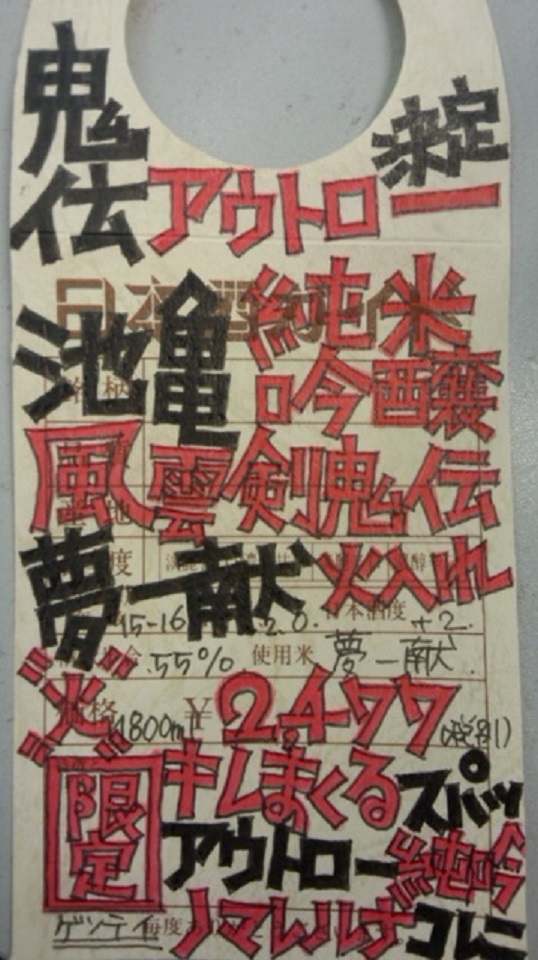 鬼伝 アウトロー 掟
日本酒
池亀 純米吟醸
風雲剣鬼伝
夢一献 火入れ
度 15-16 2.0. 日本酒度 +2.
55% 使用米 夢一献
火 価格 1800ml ¥2,477 (税別)
限定 キレまくるスパッ
アウトロー純吟
毎度あ
コレニ